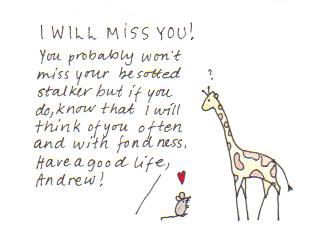 I WILL MISS YOU!
You probably won't
miss your besotted
stalker but if you
do, know that I will
think of you often
and with fondness.
Have a good life,
Andrew!
?